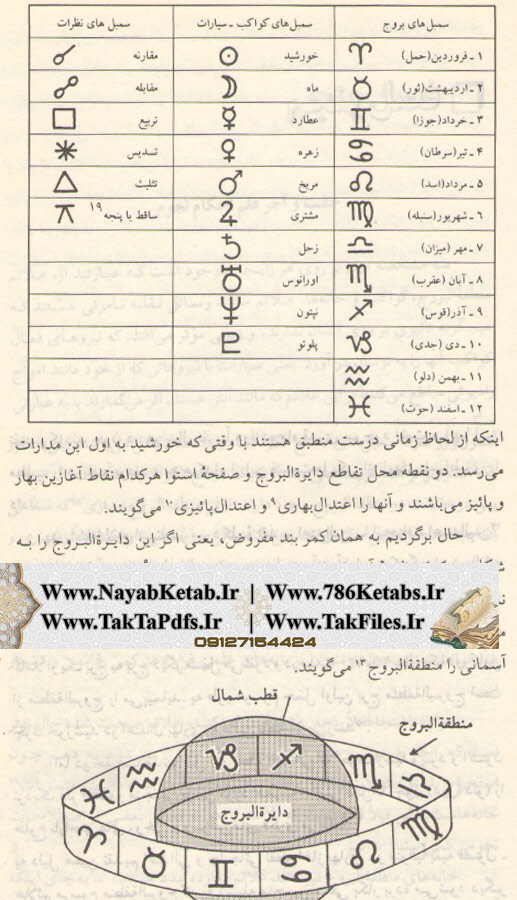 سمبل‌های بروج سمبل‌های کواکب ـ سیارات سمبل های نظرات
۱ ـ فروردین (حمل) ♈ خورشید ☉ مقارنه ☌
۲ ـ اردیبهشت (ثور) ♉ ماه ☽ مقابله ☍
۳ ـ خرداد (جوزا) ♊ عطارد ☿ تربیع □
۴ ـ تیر (سرطان) ♋ زهره ♀ تسدیس ⚹
۵ ـ مرداد (اسد) ♌ مریخ ♂ تثلیث △
۶ ـ شهریور (سنبله) ♍ مشتری ♃ ساقط یا پنجه ۱۹ ⚻
۷ ـ مهر (میزان) ♎ زحل ♄
۸ ـ آبان (عقرب) ♏ اورانوس ♅
۹ ـ آذر (قوس) ♐ نپتون ♆
۱۰ ـ دی (جدی) ♑ پلوتو ♇
۱۱ ـ بهمن (دلو) ♒
۱۲ ـ اسفند (حوت) ♓
اینکه از لحاظ زمانی درست منطبق هستند با وقتی که خورشید به اول این مدارات
می‌رسد. دو نقطه محل تقاطع دایرة‌البروج و صفحهٔ استوا هرکدام نقاط آغازین بهار
و پائیز می‌باشند و آنها را اعتدال بهاری۹ و اعتدال پائیزی۱۰ می‌گویند.
حال برگردیم به همان کمربند مفروض، یعنی اگر این دایرة‌البروج را به
Www.NayabKetab.Ir | Www.786Ketabs.Ir
Www.TakTaPdfs.Ir | Www.TakFiles.Ir
09127154424
آسمانی را منطقة‌البروج۱۳ می‌گویند.
قطب شمال
منطقة‌البروج
♓ ♒ ♑ ♐ ♏ ♎
دایرة‌البروج
♈ ♉ ♊ ♋ ♌ ♍